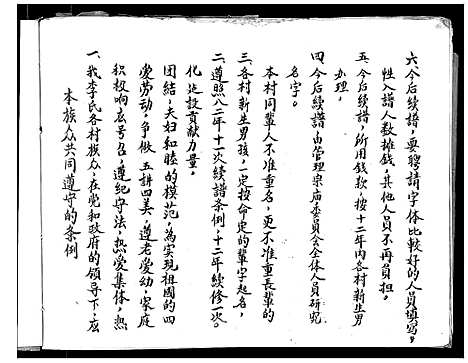 本族众共同遵守的条例
一、我李氏各村族众,在党和政府的领导下,应
积极响应号召,遵纪守法,热爱集体,热
爱劳动,争做五讲四美,遵老爱幼,家庭
团结,夫妇和睦的模范,为实现祖国的四
化建设贡献力量。
二、遵照八二年十一次续谱条例,十二年续修一次。
三、各村新生男孩,一定按命定的辈字起名,
本村同辈人不准重名,更不准重长辈的
名字。
四、今后续谱,由管理宗庙委员会全体人员研究
办理,
五、今后续谱,所用钱款,按十二年内各村新生男
性入谱人数摊钱,其他人员不再负担。
六、今后续谱,要聘请字体比较好的人员填写,